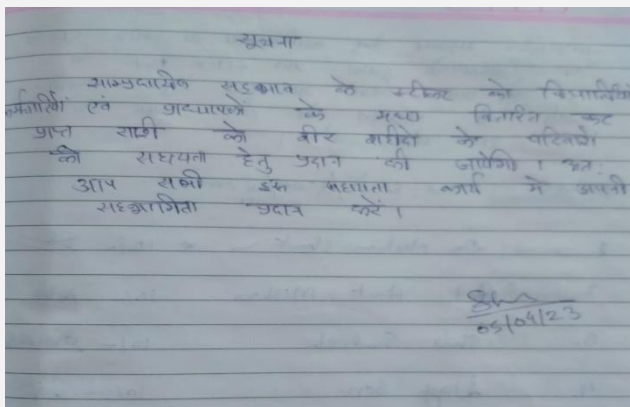 सूचना
साम्प्रदायिक सद्भाव के स्टीकर को विद्यार्थियों
कर्मचारियों एवं प्राध्यापकों के मध्य वितरित कर
प्राप्त राशी को वीर शहीदों के परिवारों
की सहायता हेतु प्रदान की जायेगी। अतः
आप सभी इस सहायता कार्य में अपनी
सहभागिता प्रदान करें।
05/04/23